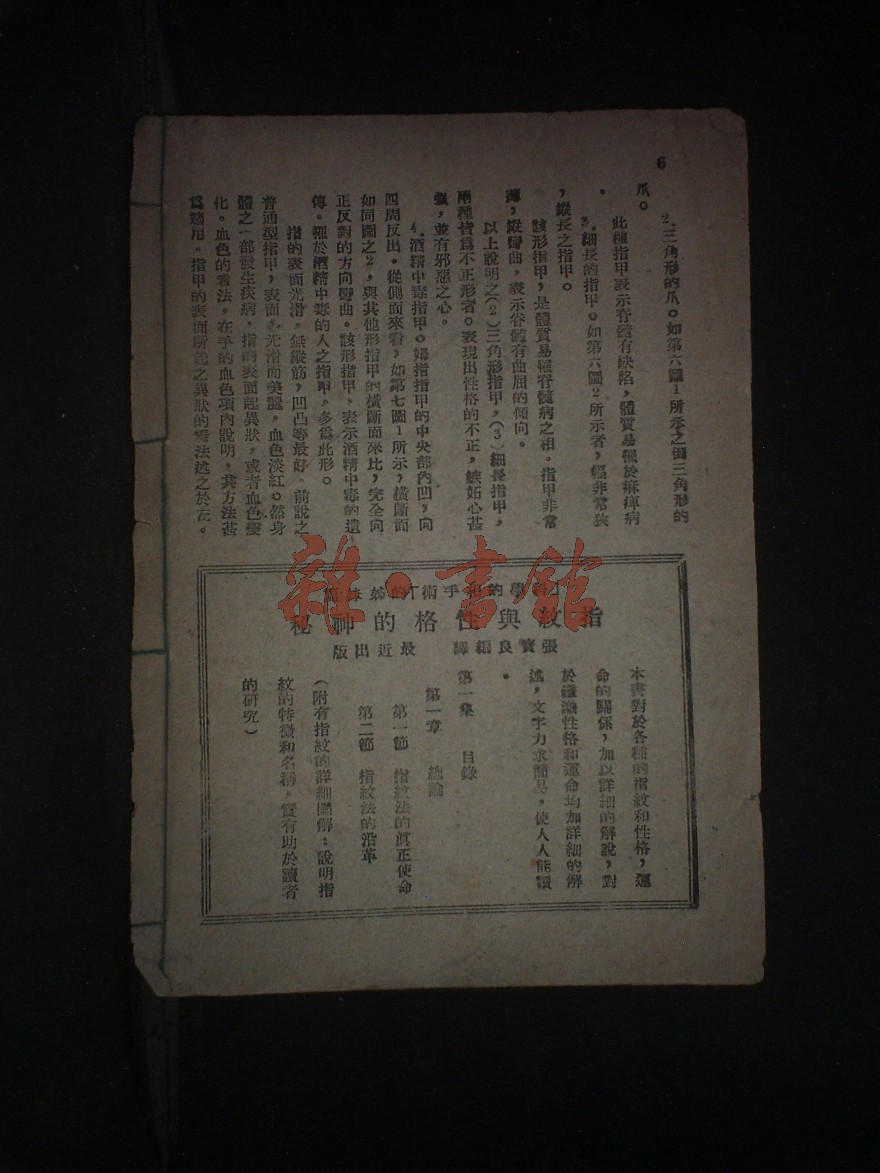 6
2.三角形的爪。如第六圖1所示之倒三角形的
爪。
此種指甲表示脊髓有缺陷，體質易罹於痳痺病
。
3.細長的指甲。如第六圖2所示者，幅非常狹
，縱長之指甲。
該形指甲，是體質易罹脊髓病之相。指甲非常
薄，縱彎曲，表示脊髓有曲屈的傾向。
以上說明之(2)三角形指甲，(3)細長指甲，
兩種皆爲不正形者。表現出性格的不正，嫉妬心甚
強，並有邪惡之心。
4.酒精中毒指甲。姆指指甲的中央部內凹，向
四周反出。從側面來看，如第七圖1所示，橫斷面
如同圖之2，與其他形指甲的橫斷面來比，完全向
正反對的方向彎曲。該形指甲，表示酒精中毒的遺
傳。罹於酒精中毒的人之指甲，多爲此形。
指的表面光滑，無縱筋，凹凸等最好。前說之
普通型指甲，表面光滑而美麗，血色淡紅。然身
體之一部發生疾病，指的表面起異狀，或者血色變
化。血色的看法，在手的血色項內說明，其方法甚
爲適用。指甲的表面所起之異狀的看法述之於左。
學的和手術的姊妹
指紋與性格的神秘
張寶良編譯 最近出版
本書對於各種的指紋和性格，運
命的關係，加以詳細的解說，對
於纖譏性格和運命均加詳細的解
述，文字力求簡易，使人人能讀
。
第一集 目錄
第一章 總論
第一節 指紋法的眞正使命
第二節 指紋法的沿革
(附有指紋的詳細圖解；說明指
紋的特徵和名稱，實有助於讀者
的研究)
雜·書館